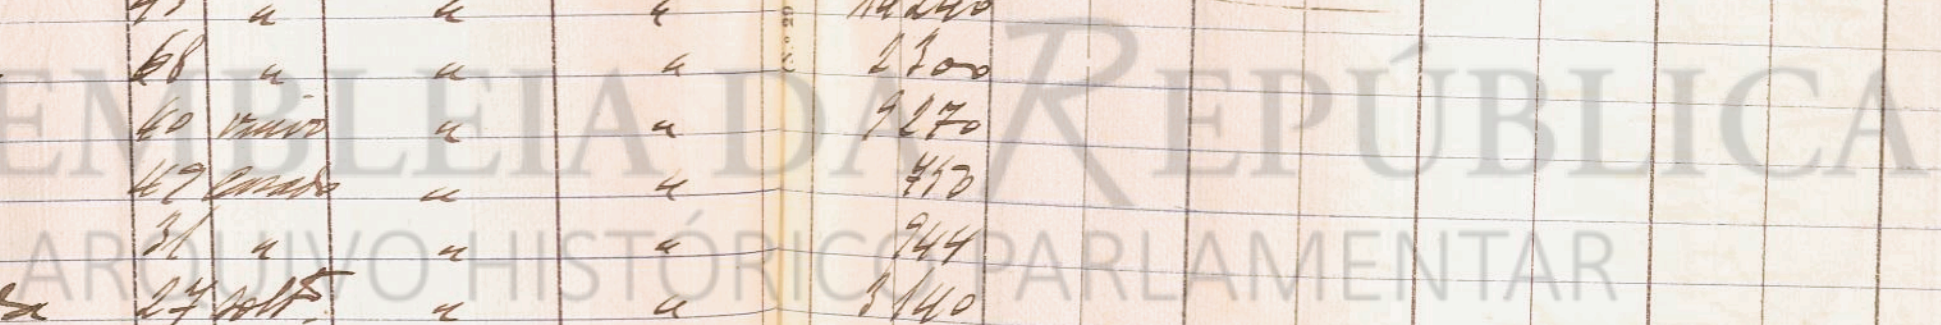 " " " 14240
68 " " " 2300
40 viuvo " " 9270
49 casado " " 750
31 " " " 944
27 solt.º " " 3140
EMBLEIA DA REPÚBLICA
ARQUIVO HISTÓRICO PARLAMENTAR